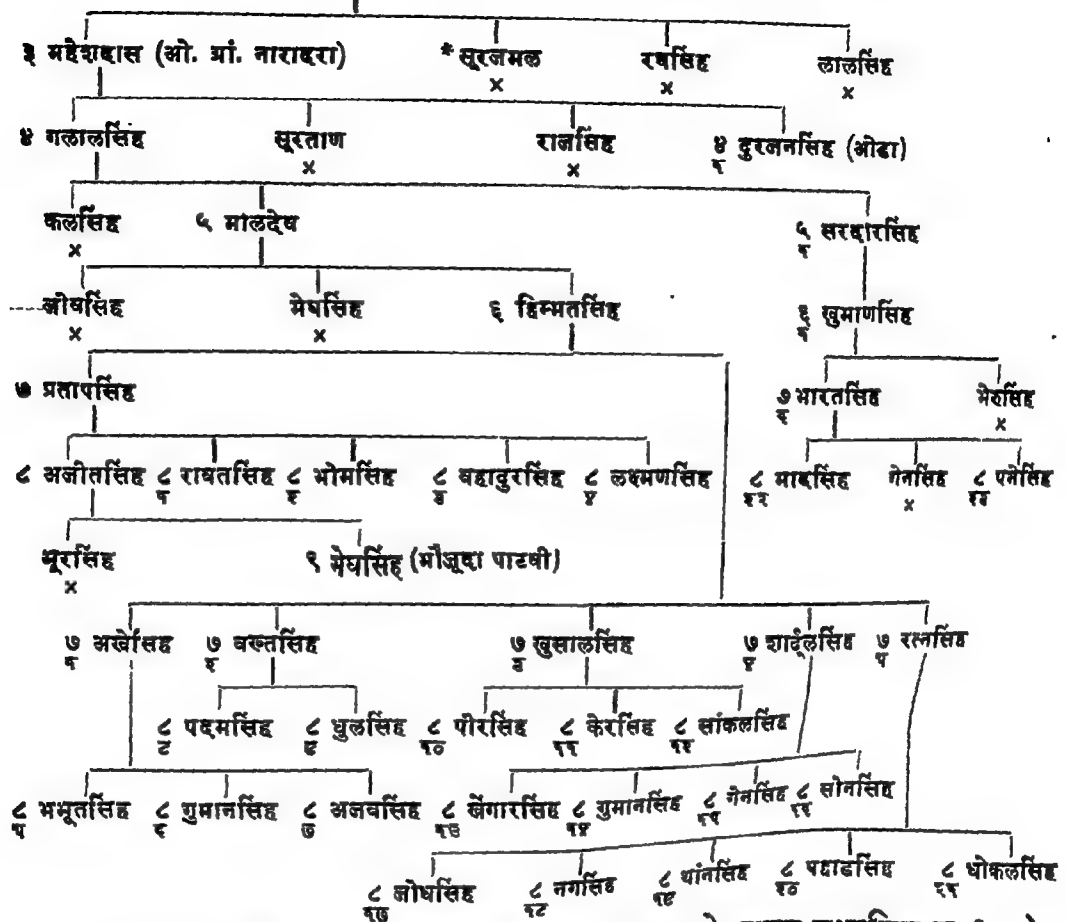 ३ महेशदास (ओ. प्रां. नारादरा) * सूरजमल रवसिंह लालसिंह
× × ×
४ गलालसिंह सूरताण राजसिंह ४/१ दुरजनसिंह (ओडा)
× ×
कलसिंह ५ मालदेव ५/१ सरदारसिंह
×
जोधसिंह मेघसिंह ६ हिम्मतसिंह ६/१ खुमाणसिंह
× ×
७ प्रतापसिंह ७/६ भारतसिंह भेरुसिंह
×
८ अजीतसिंह ८/१ रावतसिंह ८/२ भोमसिंह ८/३ बहादुरसिंह ८/४ लक्ष्मणसिंह ८/२२ मादसिंह गेनसिंह ८/२३ पनेसिंह
×
भूरसिंह ९ मेघसिंह (मौजूदा पाटवी)
×
७/१ अखेसिंह ७/२ वख्तसिंह ७/३ खुसालसिंह ७/४ शार्दूलसिंह ७/५ रत्नसिंह
८/८ पदमसिंह ८/९ धुलसिंह ८/१० पीरसिंह ८/११ केरसिंह ८/१२ सांकलसिंह
८/५ भभूतसिंह ८/६ गुमानसिंह ८/७ अजबसिंह ८/१३ खेंगारसिंह ८/१४ गुमानसिंह ८/१५ गेनसिंह ८/१६ सोनसिंह
८/१७ जोधसिंह ८/१८ नगसिंह ८/१९ थांनसिंह ८/२० पहाडसिंह ८/२१ धोकलसिंह